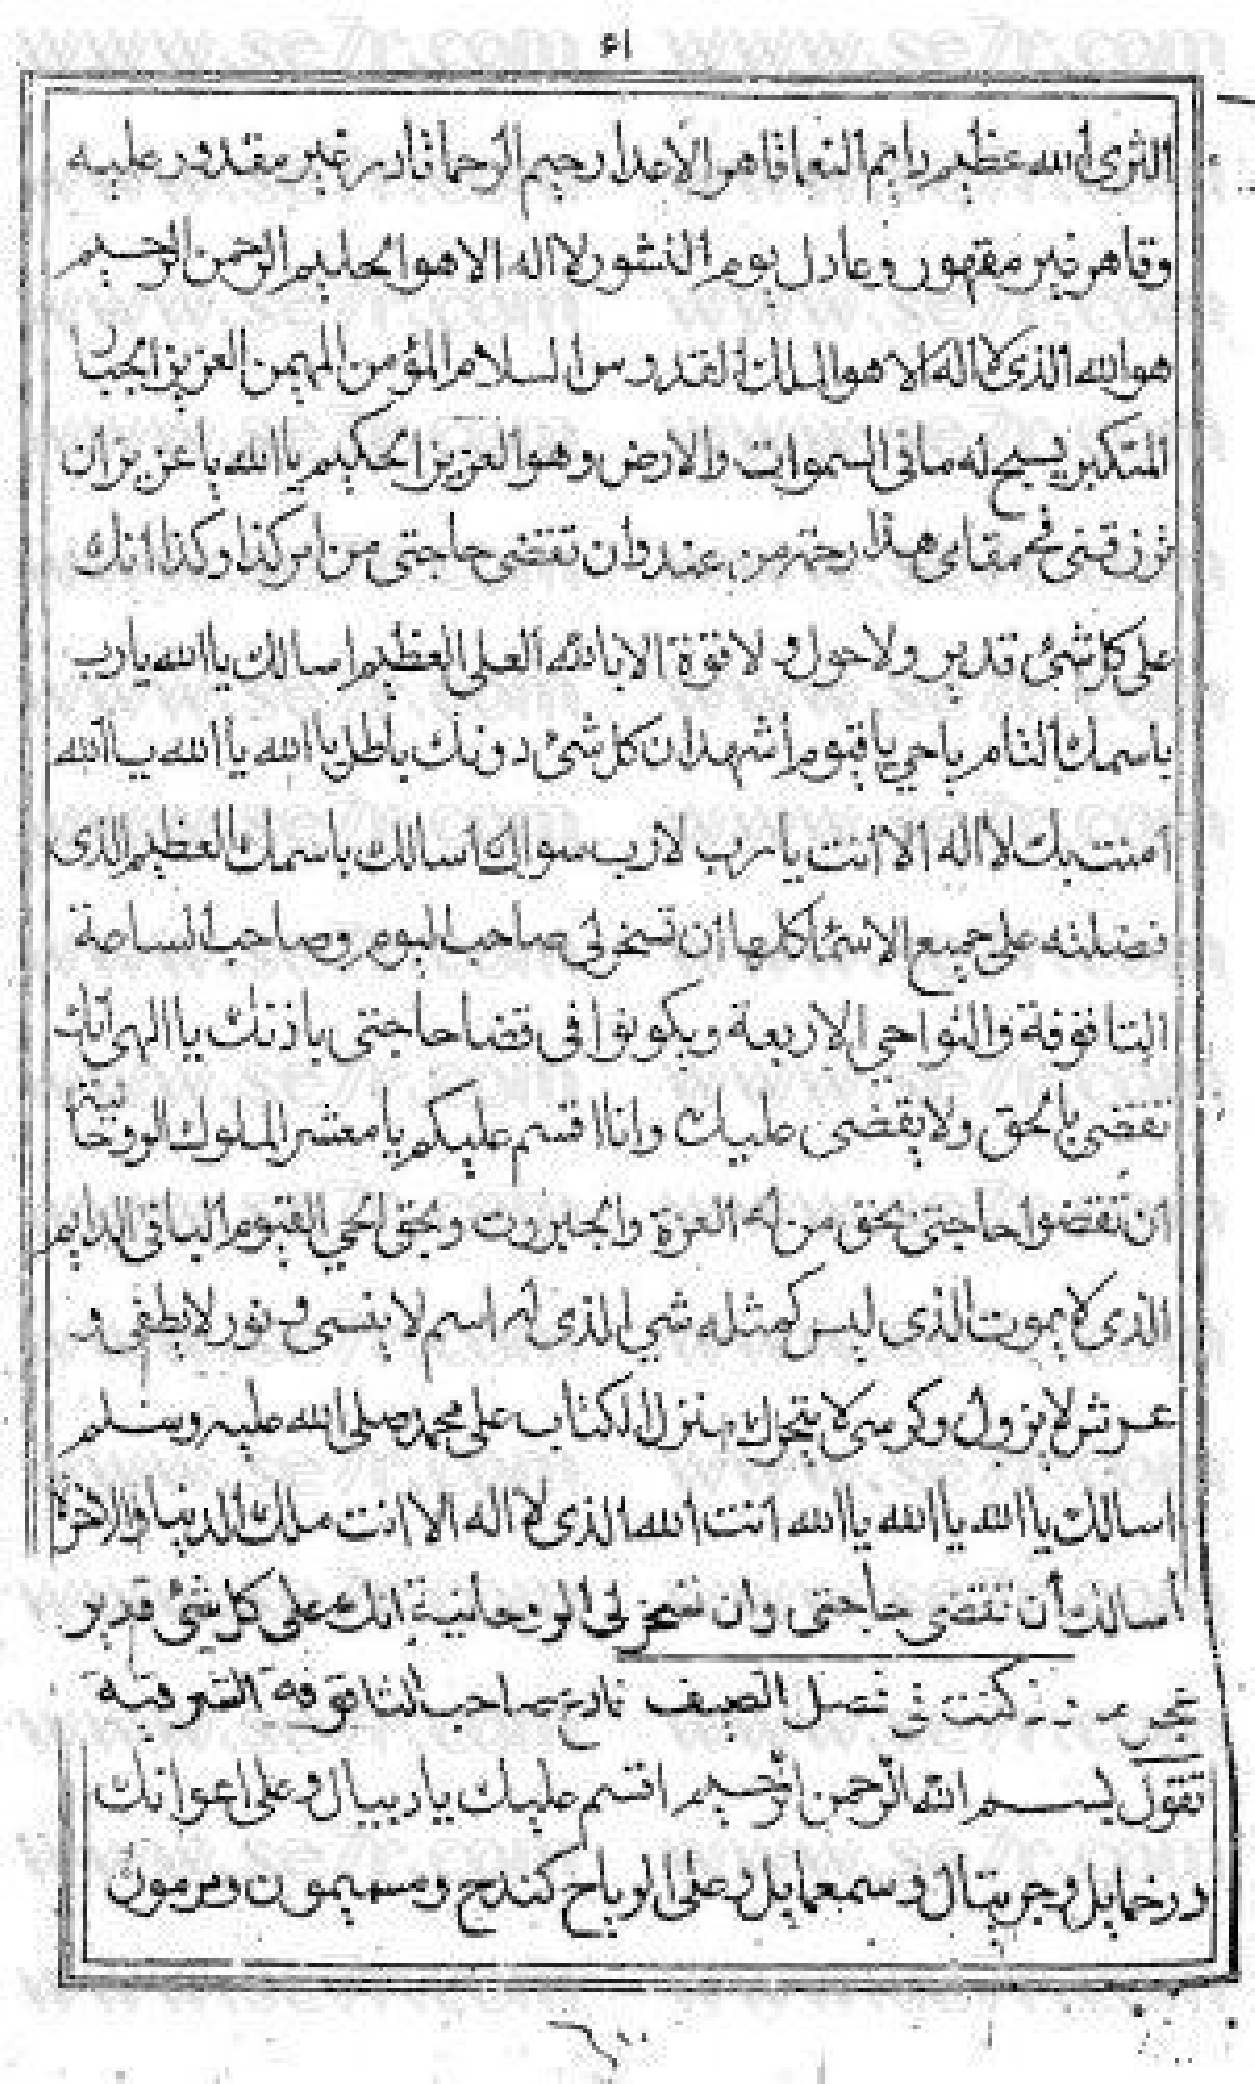 www.se7r.com www.se7r.com
الثرى الله عظيم دايم النعما قاهر الاعدا رحيم الرحما قادر غير مقدور عليه
وقاهر غير مقهور وعادل يوم النشور لا اله الا هو الحليم الرحمن الرحيم
هو الله الذى لا اله الا هو الملك القدوس السلام المؤمن المهيمن العزيز الجبار
المتكبر يسبح له مافى السموات والارض وهو العزيز الحكيم يا الله يا عزيز ان
ترزقنى فى مقامى هذا رحمة من عندك وان تقضى حاجتى من امر كذا وكذا انك
على كل شئ قدير ولا حول ولا قوة الا بالله العلى العظيم اسالك يا الله يا رب
باسمك التام يا حي يا قيوم اشهد ان كل شئ دونك باطل يا الله يا الله يا الله
امنت بك لا اله الا انت يا رب لا رب سواك اسالك باسمك العظيم الذى
فضلته على جميع الاسما كلها ان تسخر لى صاحب اليوم وصاحب الساعة
التاقوفة والنواحى الاربعة ويكونوا فى قضا حاجتى باذنك يا الهى انك
تقضى بالحق ولا يقضى عليك وانا اقسم عليكم يا معشر الملوك الروحانية
ان تقضوا حاجتى بحق من له العزة والجبروت وبحق الحي القيوم الباقى الدايم
الذى لا يموت الذى ليس كمثله شي الذى له اسم لا ينسى ونور لا يطفى و
عرش لا يزول وكرسى لا يتحرك منزل الكتاب على محمد صلى الله عليه وسلم
اسالك يا الله يا الله يا الله انت الله الذى لا اله الا انت ملك الدنيا والاخرة
اسالك ان تقضى حاجتى وان تسخر لى الروحانية انك على كل شئ قدير
كنت فى فصل الصيف نادى صاحب التاقوفة الشرقية
تقول بسم الله الرحمن الرحيم اقسم عليك يا دبيال وعلى اعوانك
ودخيايل وجربيال وسمعايل وعلى الرياح كندج وميمون